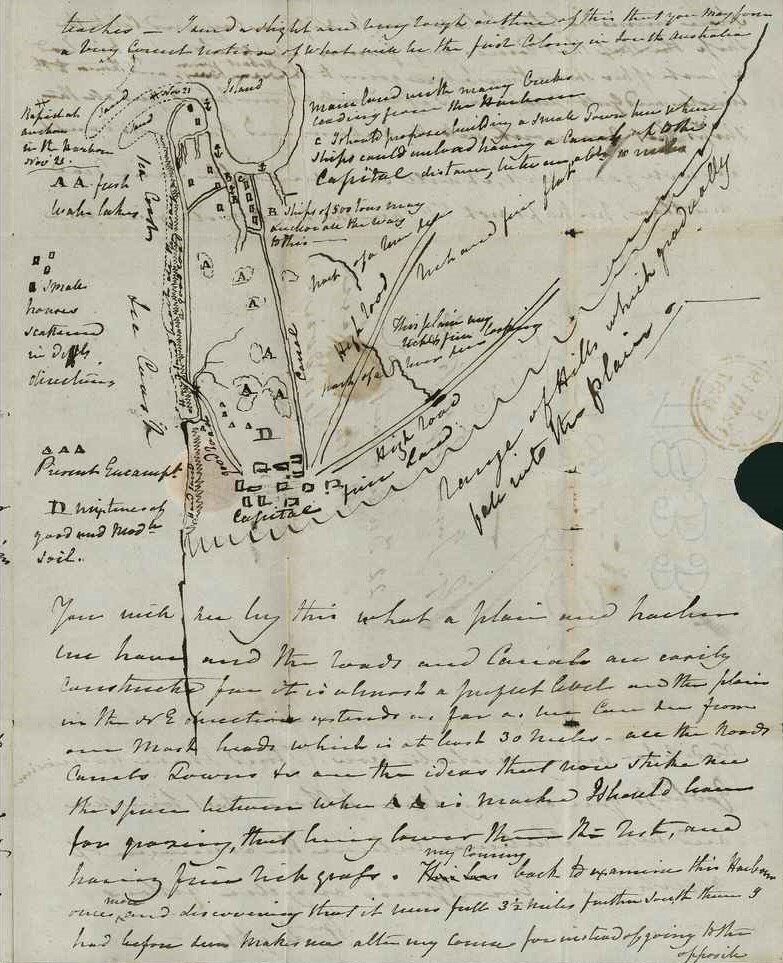 teaches — I send a slight and very rough outline of this that you may form
a very correct notion of what will be the first Colony in South Australia
Rapid at
anchor
in the harbor
Nov 21.
Sand
Sand
Nov 21
Island
main land with many Creeks
leading from the Harbour
C I should propose building a small Town here where
ships could unload having a Canal up to the
Capital distance, between, miles
A A fresh
water lakes
B. Ships of 500 tons may
anchor all the way
to this —
small
houses
scattered
in diff.t
directions
Sea Coast
Sea Coast
Canal
part of a river seen
High Road
rich and fine flat
This plain very
rich & fine looking
part of a river seen
High Road
fine land
range of Hills which gradually
fall into the plains
Road
A A A
Present Encampt.
D mixture of
good and Mod.te
soil.
D
Capital
You will see by this what a plain and harbour
we have and the roads and Canals are easily
constructed for it is almost a perfect level and the plain
in the N E direction extends as far as we can see from
our Mast heads which is at least 30 miles. all the Roads
Canals Towns &c are the ideas that now strike me
the space between where A A is marked I should leave
for grazing, that being lower than the rest, and
having fine rich grass. my coming back to examine this Harbour
once more and discovering that it runs full 3½ miles farther south than I
had before seen makes me alter my course for instead of going to the
opposite